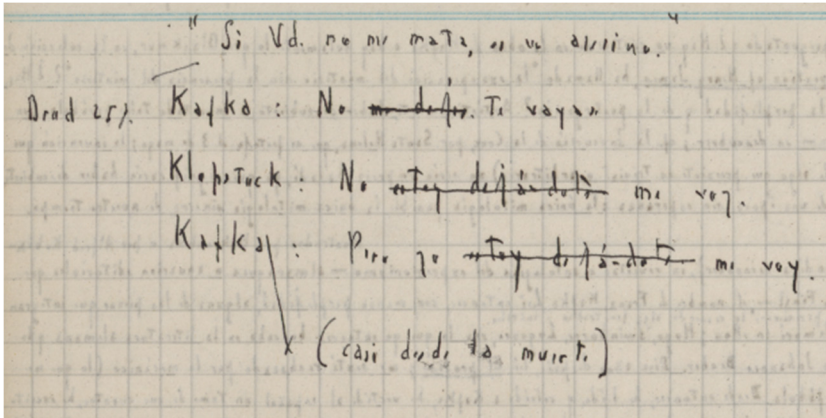 "Si Vd. no me mata, es un asesino."
Brod 257. Kafka: No me dejes. Te vayas
Klopstock: No estoy dejándote me voy.
Kafka: Pero yo estoy dejándote me voy.
(casi desde la muerte)